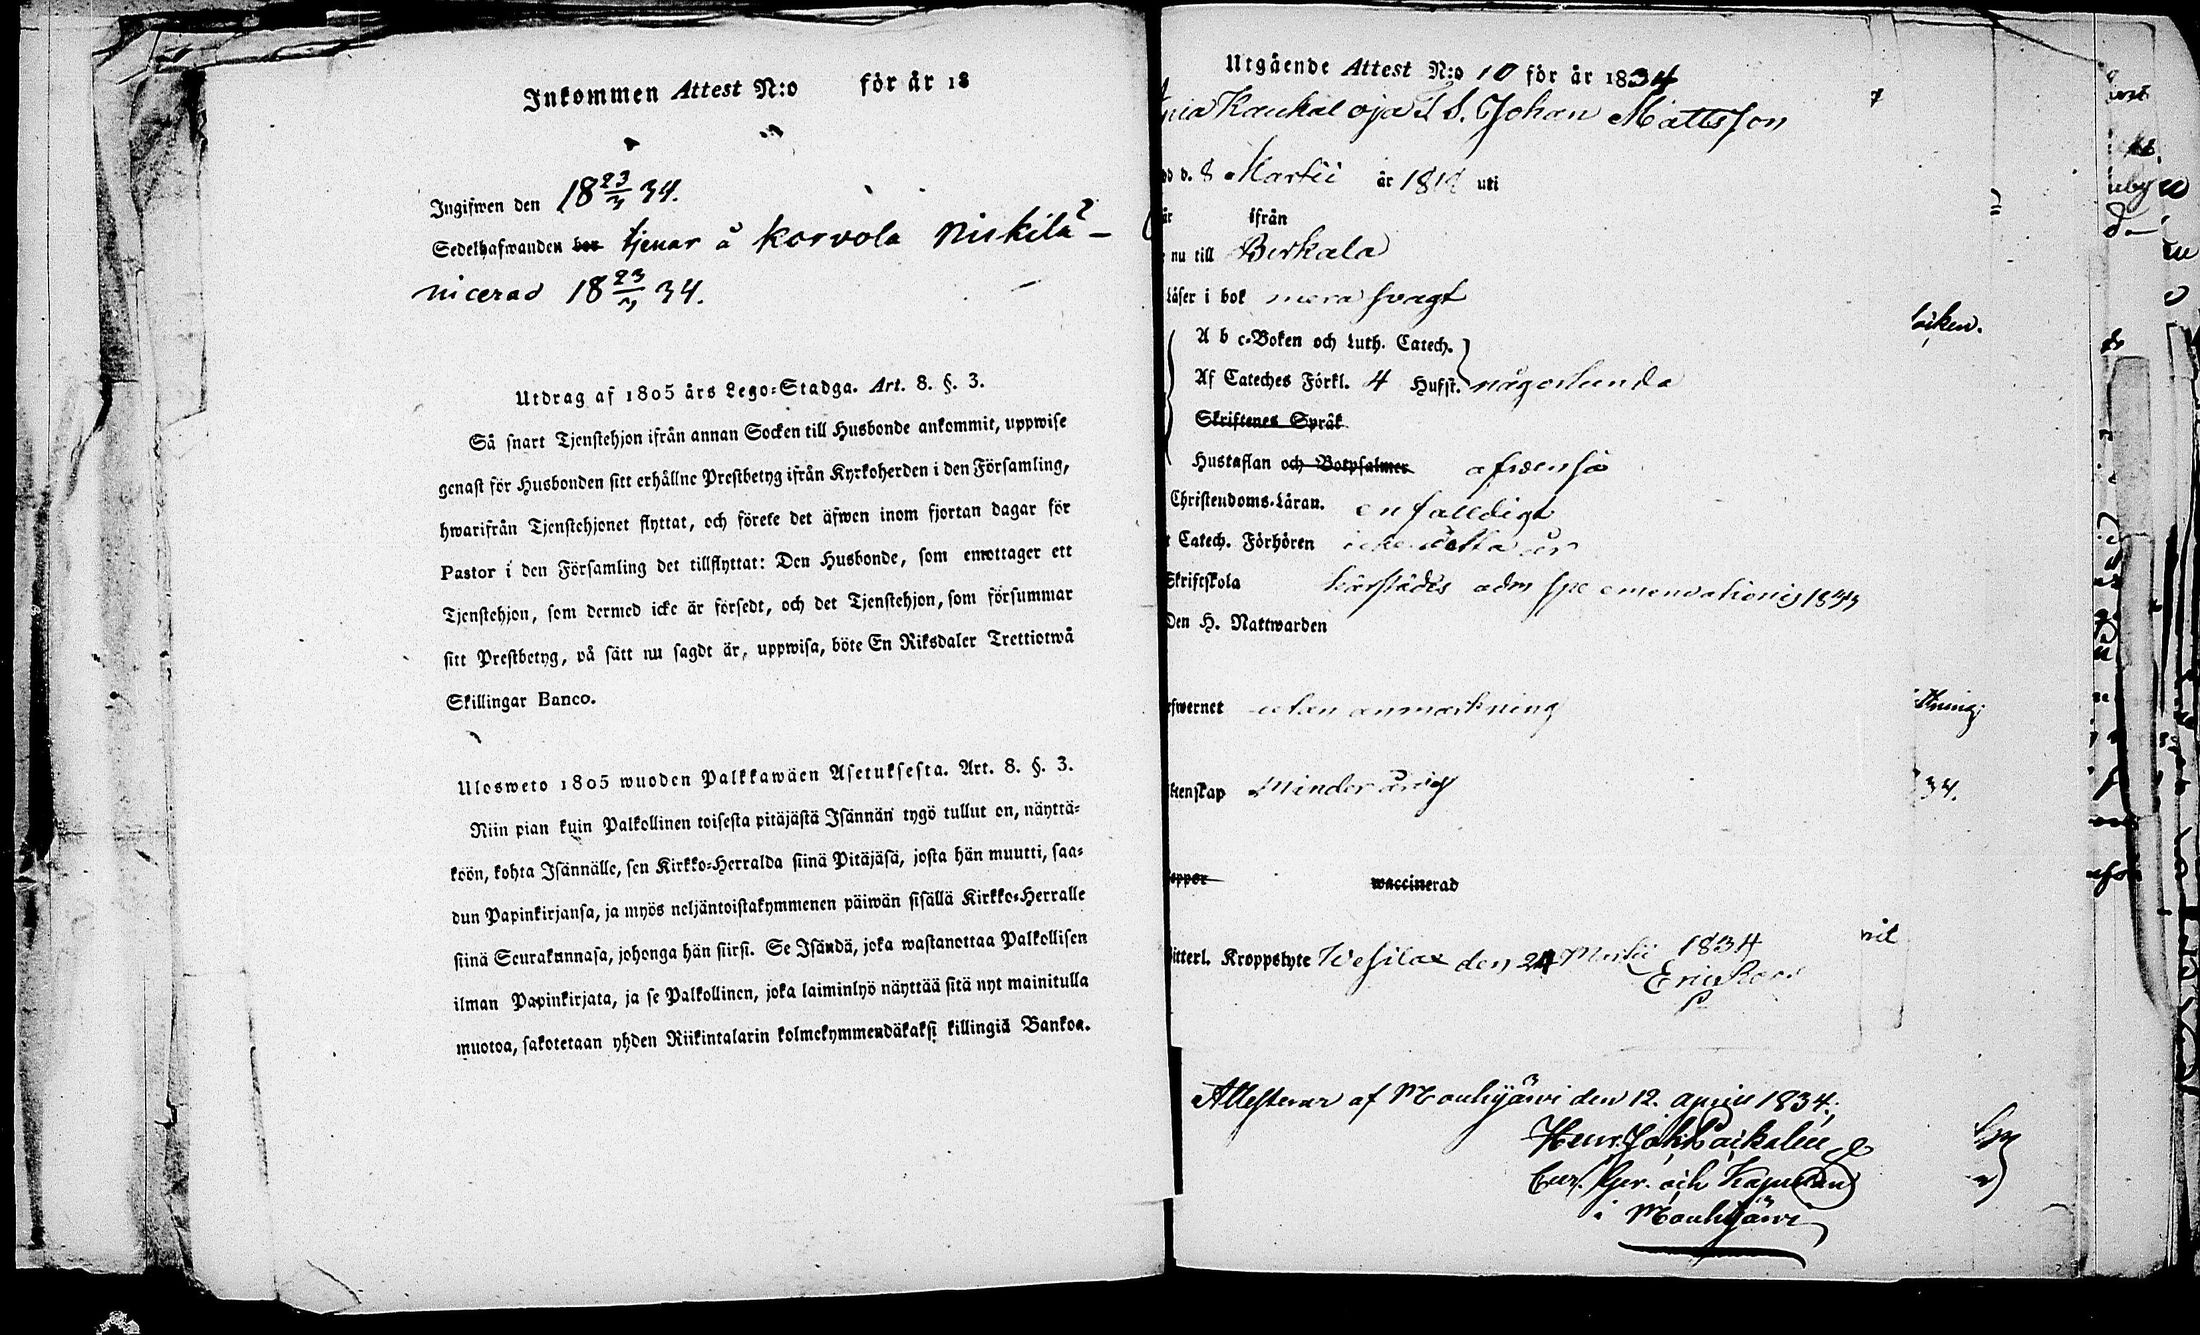 Inkommen Attest N:o för år 18
Ingifwen den 18 23/3 34.
Sedelhafwanden bor tjenar å Korvola Niskila
nicerad 18 23/3 34.
Utdrag af 1805 års Lego=Stadga. Art. 8. §. 3.
Så snart Tjenstehjon ifrån annan Socken till Husbonde ankommit, uppwise
genast för Husbonden sitt erhållne Prestbetyg ifrån Kyrkoherden i den Församling,
hwarifrån Tjenstehjonet flyttat, och förete det äfwen inom fjortan dagar för
Pastor i den Församling det tillflyttat: Den Husbonde, som emottager ett
Tjenstehjon, som dermed icke är försedt, och det Tjenstehjon, som försummar
sitt Prestbetyg, på sätt nu sagdt är, uppwisa, böte En Riksdaler Trettiotwå
Skillingar Banco.
Ulosweto 1805 wuoden Palkkawäen Asetuksesta. Art. 8. §. 3.
Niin pian kuin Palkollinen toisesta pitäjästä Isännän tygö tullut on, näyttä=
köön, kohta Isännälle, sen Kirkko=Herralda siinä Pitäjäsä, josta hän muutti, saa=
dun Papinkirjansa, ja myös neljäntoistakymmenen päiwän sisällä Kirkko=Herralle
siinä Seurakunnasa, johonga hän siirsi. Se Isändä, joka wastanottaa Palkollisen
ilman Papinkirjata, ja se Palkollinen, joka laiminlyö näyttää sitä nyt mainitulla
muotoa, sakotetaan yhden Riikintalarin kolmekymmendäkaksi killingiä Bankoa.
Utgående Attest N:o 10 för år 1834
Kaukal oja S. Johan Mattsson
d. 8 Martii år 181 uti
ifrån
nu till Birkala
Läser i bok mera svagt
A b c=Boken och Luth. Catech.
Af Cateches Förkl. 4 Hufst. någorlunda
Skriftenes Språk
Hustaflan och Botpsalmer afvenså
Christendoms-Läran. enfaldigt
Catech. Förhören icke detta år
Skriftskola härstädes adm spe emendationis 1833
Den H. Nattwarden
fwernet utan anmärkning
tenskap Minderårig
oppor waccinerad
itterl. Kroppslyte Wesilax den 24 Martii 1834
Attesterar af Mouhijärvi den 12. April 1834.
i Mouhijärvi